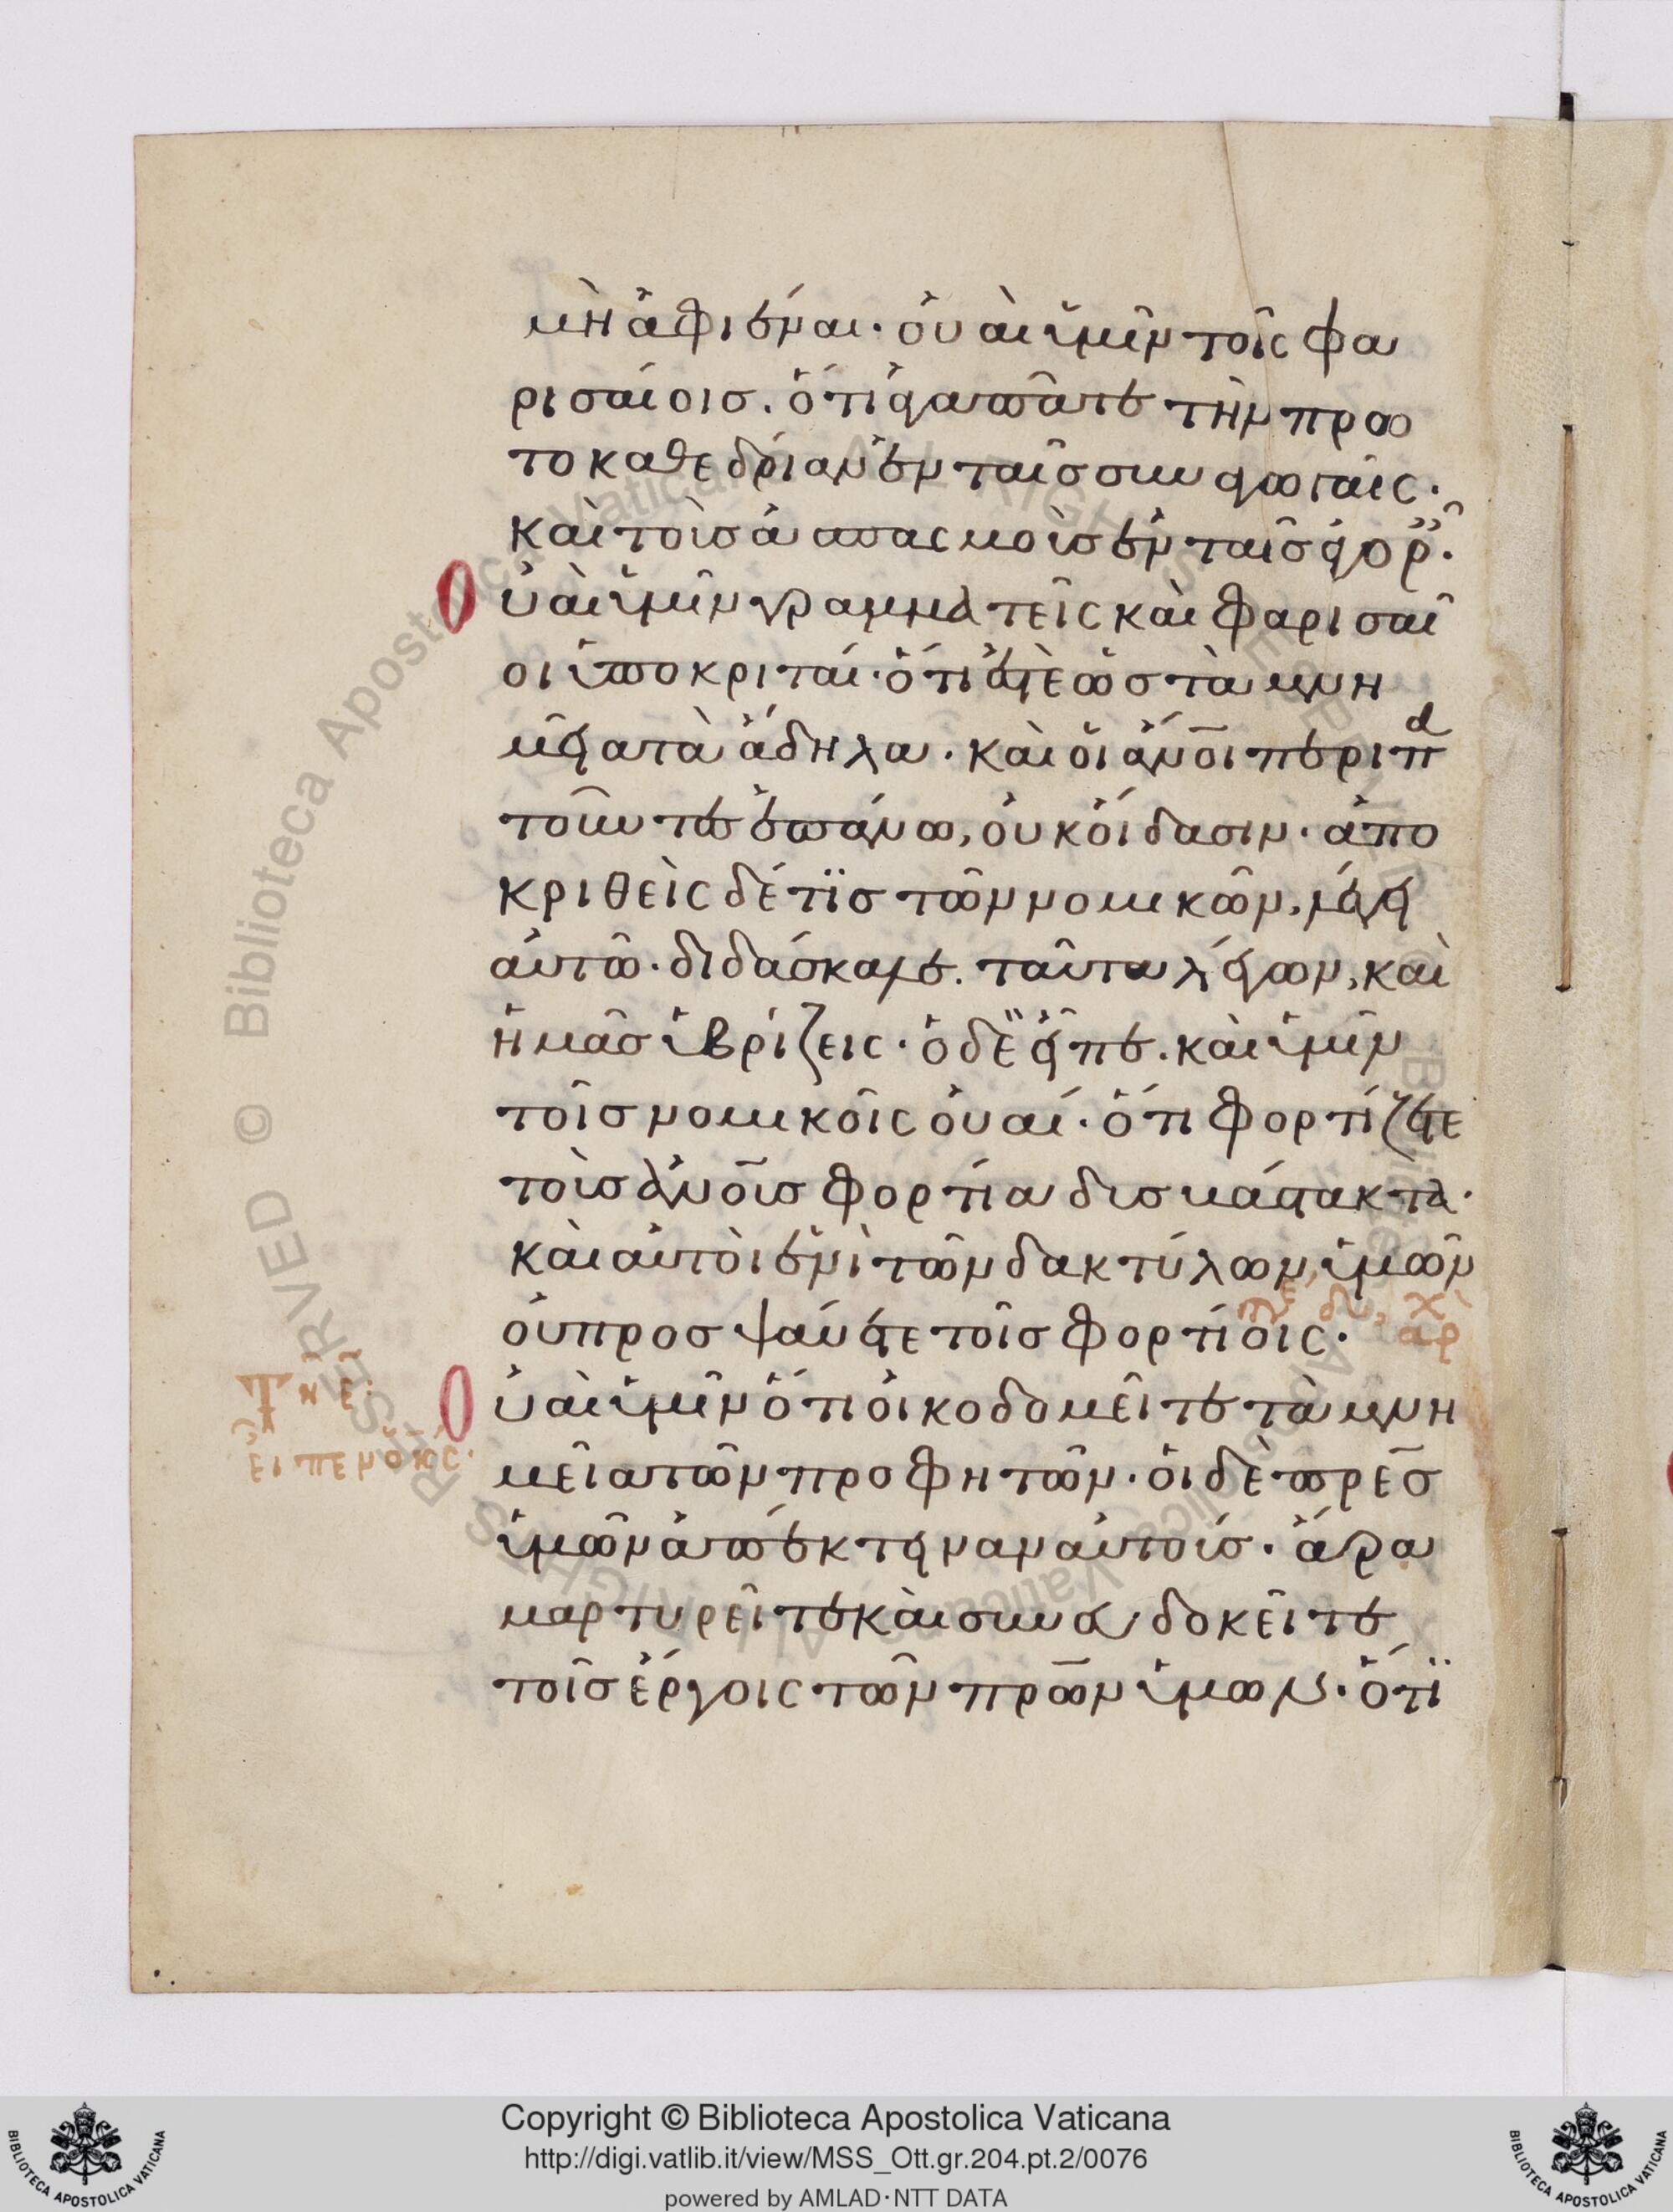 μὴ ἀφιέναι· οὐαὶ ὑμῖν τοῖς φα
ρισαίοις. ὅτι ἀγαπᾶτε τὴν πρω
τοκαθεδρίαν ἐν ταῖς συναγωγαῖς.
καὶ τοὺς ἀσπασμοὺς ἐν ταῖς ἀγορ.
Οὐαὶ ὑμῖν γραμματεῖς καὶ φαρισαῖ
οι ὑποκριταί· ὅτι ἐστὲ ὡς τὰ μνη
μεῖα τὰ ἄδηλα. καὶ οἱ ἄνοι περιπα
τοῦντες ἐπάνω, οὐκ οἴδασιν. ἀπο
κριθεὶς δέ τις τῶν νομικῶν, λέγει
αὐτῶ. διδάσκαλε. ταῦτα λέγων, καὶ
ἡμᾶς ὑβρίζεις· ὁ δὲ εἶπε. καὶ ὑμῖν
τοῖς νομικοῖς οὐαί. ὅτι φορτίζετε
τοὺς ἀνους φορτία δυσβάστακτα.
καὶ αὐτοὶ ἑνὶ τῶν δακτύλων ὑμῶν
οὐ προσψαύετε τοῖς φορτίοις.
Οὐαὶ ὑμῖν ὅτι οἰκοδομεῖτε τὰ μνη
μεῖα τῶν προφητῶν. οἱ δὲ πρες
ὑμῶν ἀπέκτειναν αὐτούς. ἄρα
μαρτυρεῖτε καὶ συνευδοκεῖτε
τοῖς ἔργοις τῶν πρων ὑμῶν. ὅτι
© Biblioteca Apostolica Vaticana
Copyright © Biblioteca Apostolica Vaticana
http://digi.vatlib.it/view/MSS_Ott.gr.204.pt.2/0076
powered by AMLAD·NTT DATA
BIBLIOTECA APOSTOLICA VATICANA
BIBLIOTECA APOSTOLICA VATICANA